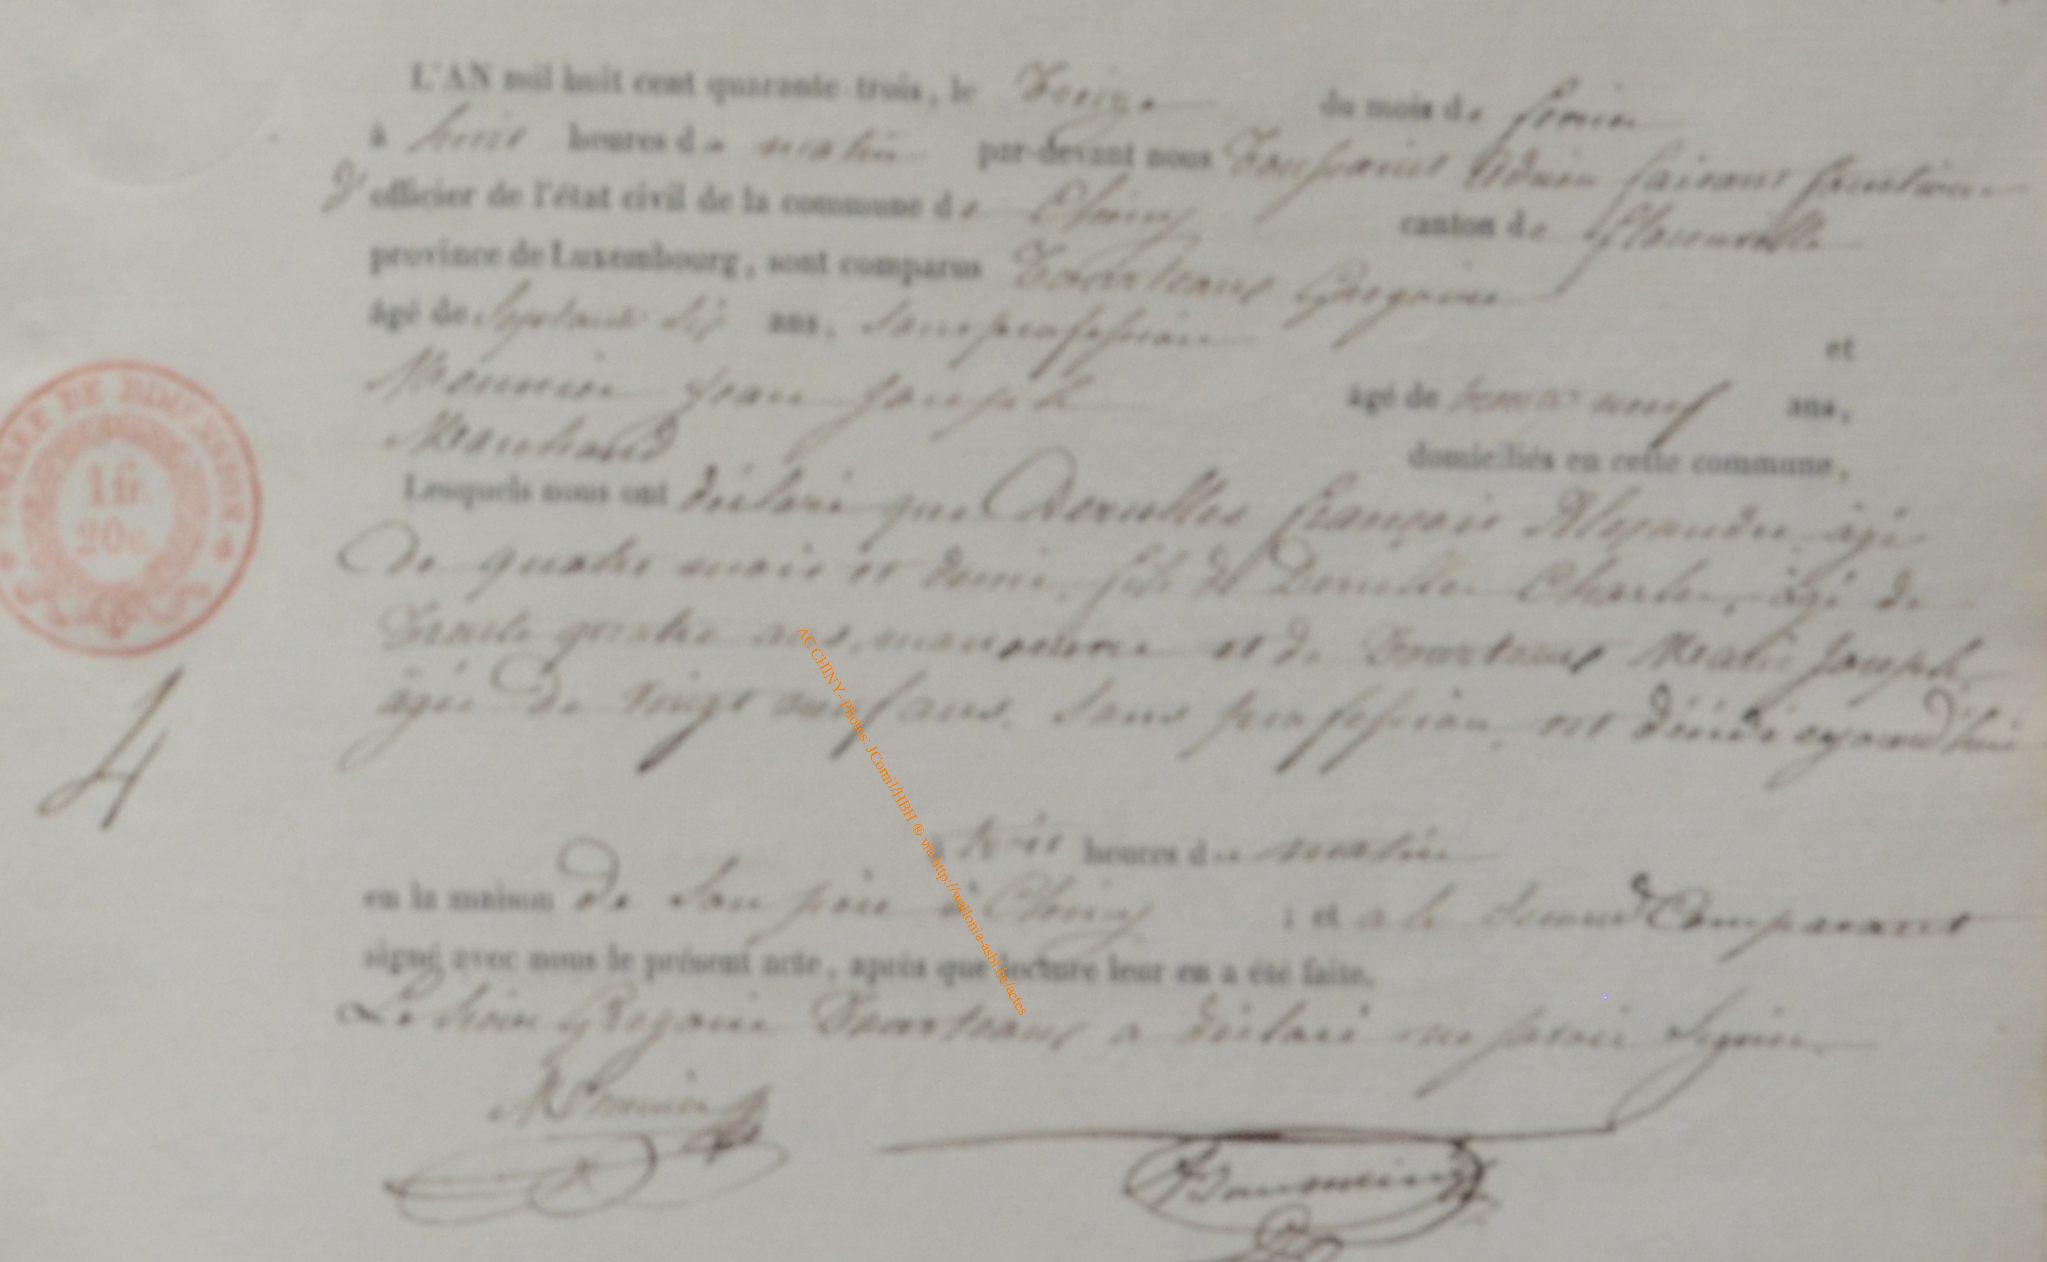 L'AN mil huit cent quarante-trois, le Treize du mois de fevrier
à huit heures du matin par-devant nous Toussaint Adrien faisant fonction
d' officier de l'état civil de la commune de Chiny canton de Florenville
province de Luxembourg, sont comparus Tourteaux Gregoire
âgé de Septante six ans, sans profession et
Meunier Jean Joseph âgé de trente neuf ans,
Marchand domiciliés en cette commune,
Lesquels nous ont déclaré que Derulles François Alexandre âgé
de quatre mois et demi, fils de Derulles Charles, âgé de
Trente quatre ans, manoeuvre et de Tourteaux Marie Joseph
âgée de vingt neuf ans, sans profession, est décédé aujourd'hui
à trois heures du matin
en la maison de son père à Chiny ; et a le second Comparant
signé avec nous le présent acte, après que lecture leur en a été faite.
Le Gregoire Tourteaux a déclaré ne savoir signer.
Meunier
Toussaint
DE DIMENSION
1 fr.
20c.
4
ACCHINY - photos: JComil/HBH ® via http://wallonia-asbl.be/actes